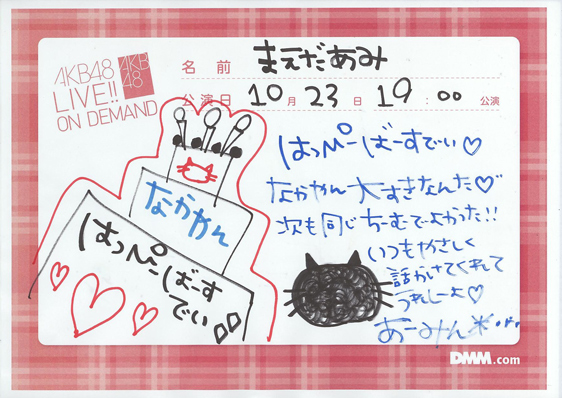 AKB48
LIVE!!
ON DEMAND
AKB
48
名前 まえだあみ
公演日 10月23日 19:00 公演
はっぴーばーすでい♡
なかやん大すきなんだ♡
次も同じちーむでよかった!!
いつもやさしく
話かけてくれて
うれしーよ♡
あーみん
なかやん
はっぴーばーす
でい
DMM.com